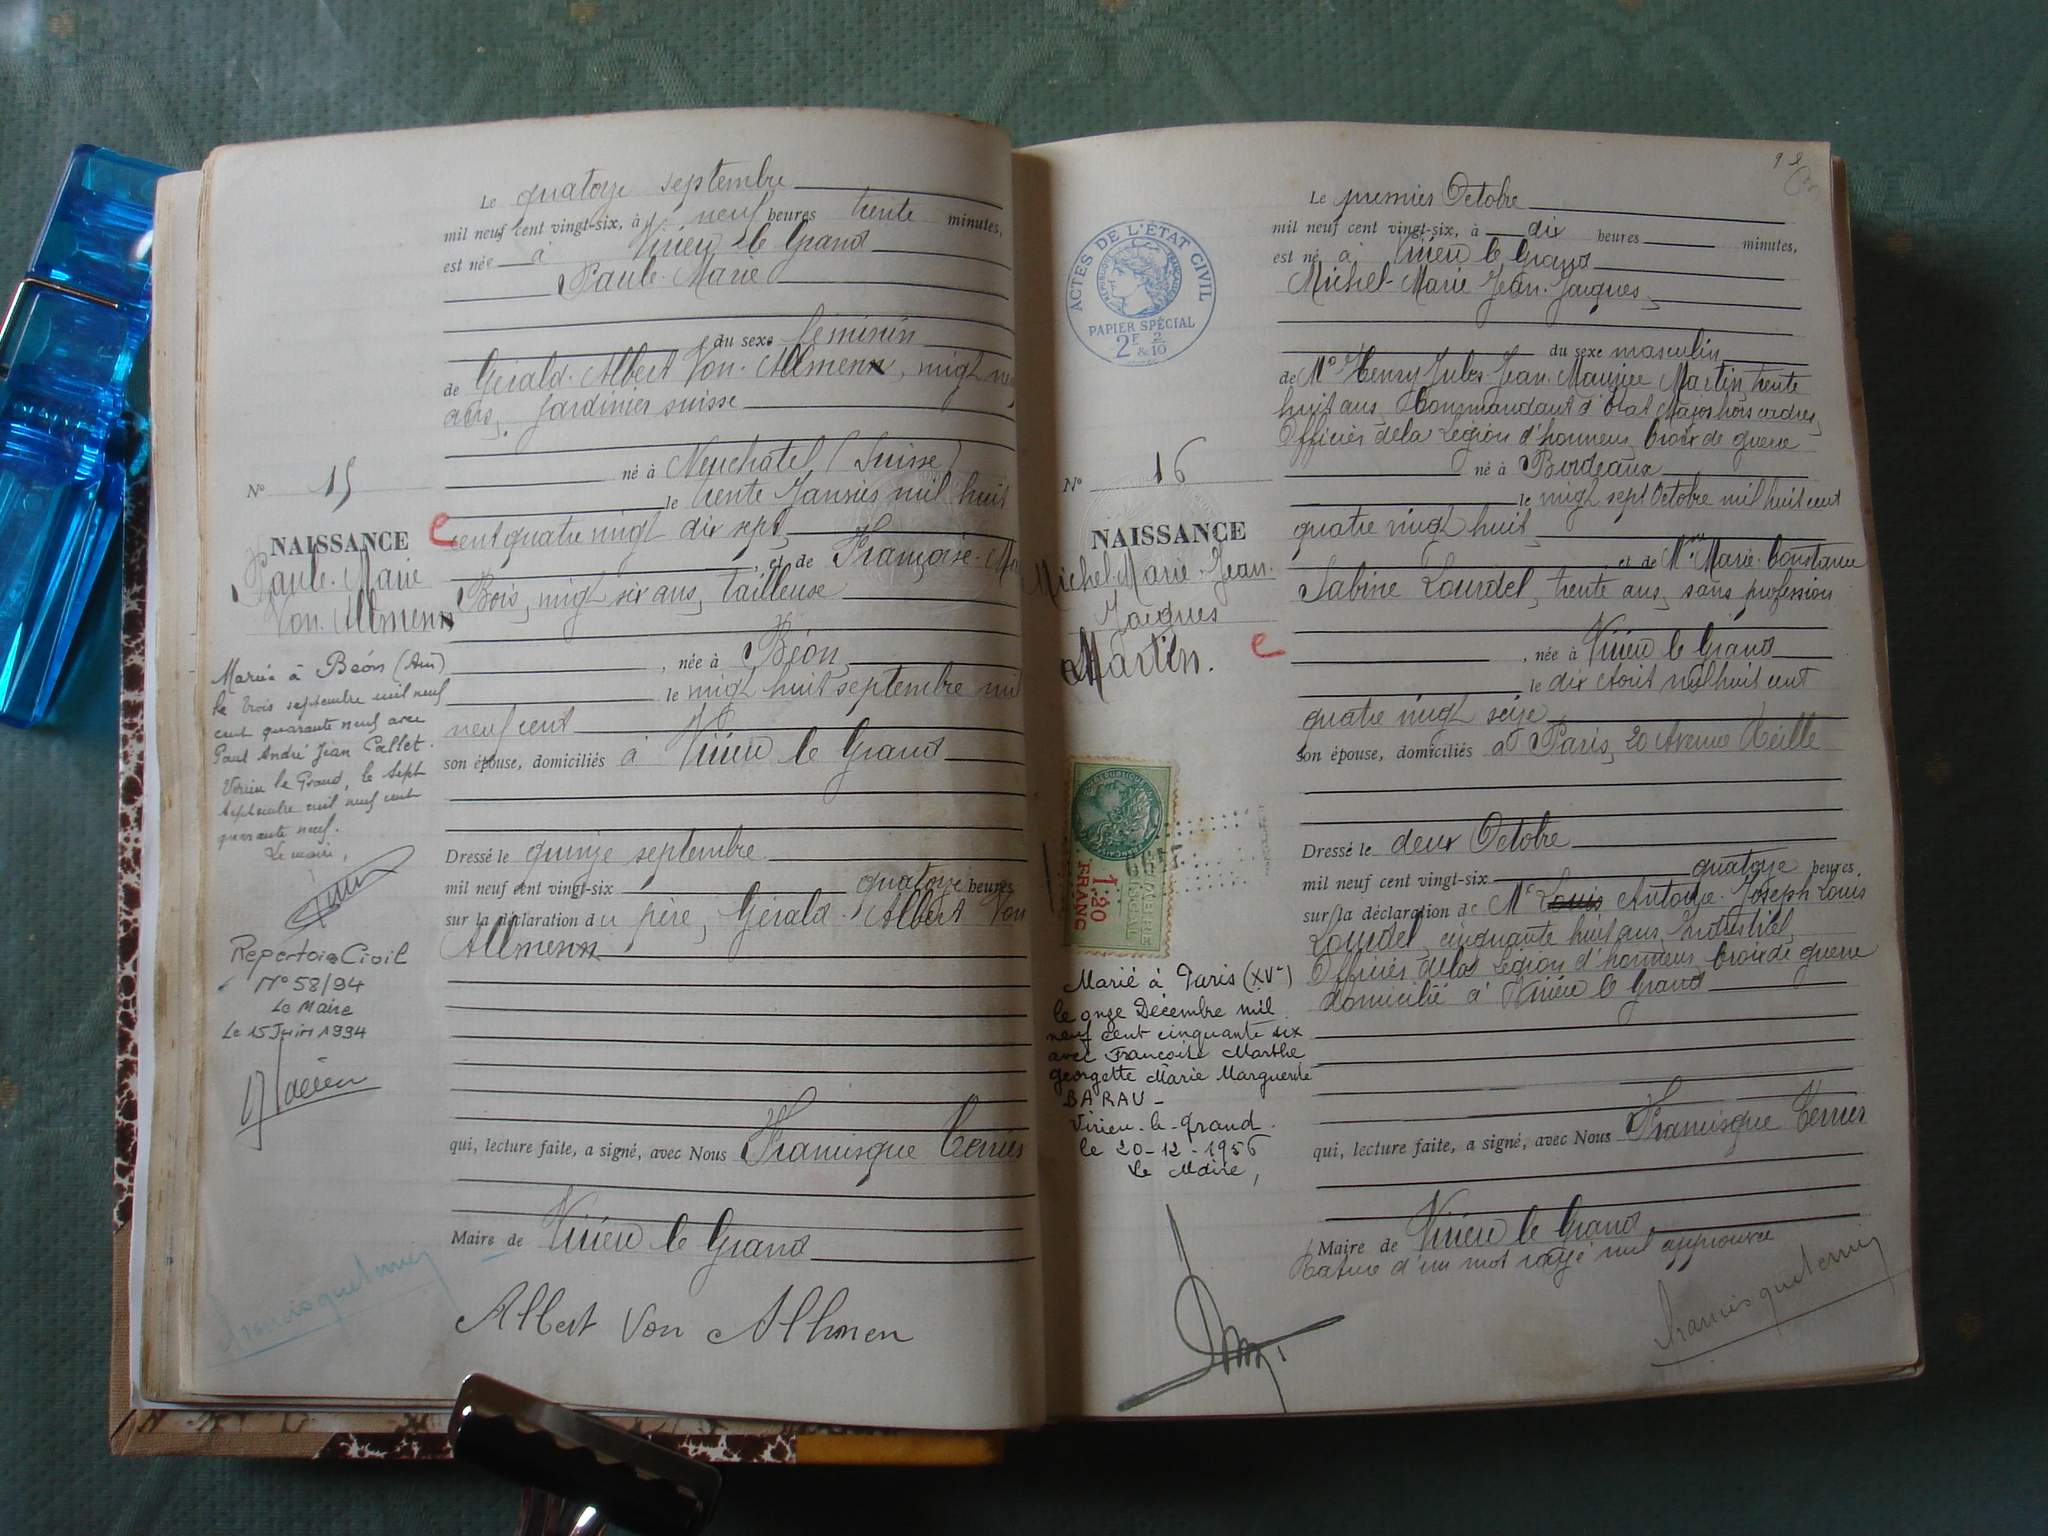 Le quatorze septembre
mil neuf cent vingt-six, à neuf heures trente minutes,
est née à Virieu le Grand
Paule-Marie
du sexe féminin
de Gérald-Albert Von-Allmenn, vingt neuf
ans, jardinier suisse
né à Neuchatel (Suisse)
le trente Janvier mil huit
cent quatre vingt dix sept,
, et de Françoise-
Bois, vingt six ans, tailleuse
, née à Béon,
le vingt huit septembre mil
neuf cent
son épouse, domiciliés à Virieu le Grand
Dressé le quinze septembre
mil neuf cent vingt-six quatorze heures
sur la déclaration du père, Gérald-Albert Von
Allmenn
qui, lecture faite, a signé, avec Nous Francisque Terrier
Maire de Virieu le Grand
Albert Von Allmen
N° 15
NAISSANCE
Paule-Marie
Von Allmenn
Mariée à Béon (Ain)
le trois septembre mil neuf
cent quarante neuf avec
Paul André Jean Pallet.
Virieu le Grand, le sept
septembre mil neuf cent
quarante neuf.
Le maire,
Repertoire Civil
N° 58/94
Le Maire
Le 15 Juin 1994
Francisque Terrier
9
Le premier Octobre
mil neuf cent vingt-six, à dix heures minutes,
est né à Virieu le Grand
Michel-Marie Jean-Jacques,
du sexe masculin
de Mr Henry Jules-Jean-Maurice Martin, trente
huit ans, Commandant d'Etat Major hors cadres,
Officier de la Légion d'honneur, Croix de guerre
né à Bordeaux
le vingt sept Octobre mil huit cent
quatre vingt huit,
et de Mme Marie-Constance
Sabine Lourdel, trente ans, sans profession
, née à Virieu le Grand
le dix Aout mil huit cent
quatre vingt seize
son épouse, domiciliés à Paris, 20 Avenue Reille
Dressé le deux Octobre
mil neuf cent vingt-six quatorze heures
sur la déclaration de Mr Louis Antoine-Joseph Louis
Lourdel, cinquante huit ans, Industriel,
Officier de la Légion d'honneur, Croix de guerre
domicilié à Virieu le Grand
qui, lecture faite, a signé, avec Nous Francisque Terrier
Maire de Virieu le Grand
Rature d'un mot rayé nul approuvée
Francisque Terrier
ACTES DE L'ÉTAT CIVIL
RÉPUBLIQUE FRANÇAISE
PAPIER SPÉCIAL
2F 2
& 10
N° 16
NAISSANCE
Michel-Marie-Jean-
Jacques
Martin.
1.20
FRANC
Marié à Paris (XVe)
le onze Décembre mil
neuf cent cinquante six
avec Françoise Marthe
Georgette Marie Marguerite
BARAU -
Virieu-le-Grand.
le 20-12-1956
Le Maire,